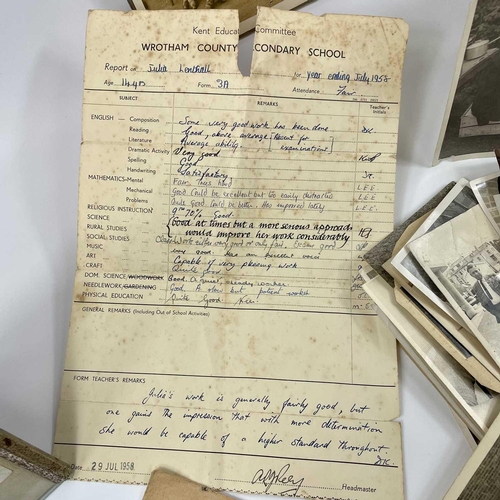 Kent Education Committee
WROTHAM COUNTY SECONDARY SCHOOL
Report on Julia for year ending July 1958
Age Form 3A Attendance Fair
SUBJECT REMARKS Teacher's Initials
ENGLISH — Composition Some very good work has been done
Reading Good, above average (Recent
Literature Average ability. examinations)
Dramatic Activity Very good
Spelling Good
Handwriting Satisfactory
MATHEMATICS-Mental Fair. Tries hard L.E.E
Mechanical Good Could be excellent but too easily distracted L.E.E
Problems Quite Good Could be better. Has improved lately L.E.E.
RELIGIOUS INSTRUCTION 70% Good.
SCIENCE Good at times but a more serious approach
RURAL STUDIES would improve her work considerably
SOCIAL STUDIES work either very good or only fair.
MUSIC Very good has an excellent voice
ART Capable of very pleasing work
CRAFT Quite good
DOM. SCIENCE/WOODWORK Good. A quiet, steady worker
NEEDLEWORK/GARDENING Good. A slow but patient worker
PHYSICAL EDUCATION Quite Good
GENERAL REMARKS (Including Out of School Activities)
FORM TEACHER'S REMARKS
Julia's work is generally fairly good, but
one gains the impression that with more determination
she would be capable of a higher standard throughout.
Date 29 JUL 1958
Headmaster